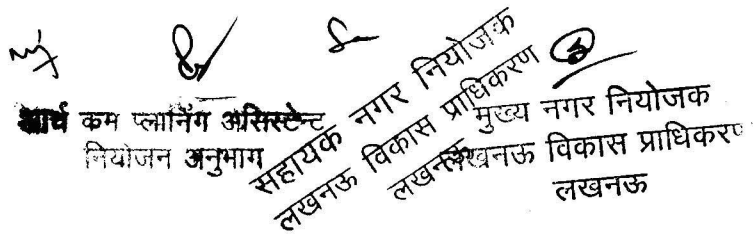 कम प्लानिंग असिस्टेन्ट
नियोजन अनुभाग
सहायक नगर नियोजक
लखनऊ विकास प्राधिकरण
लखनऊ
मुख्य नगर नियोजक
लखनऊ विकास प्राधिकरण
लखनऊ